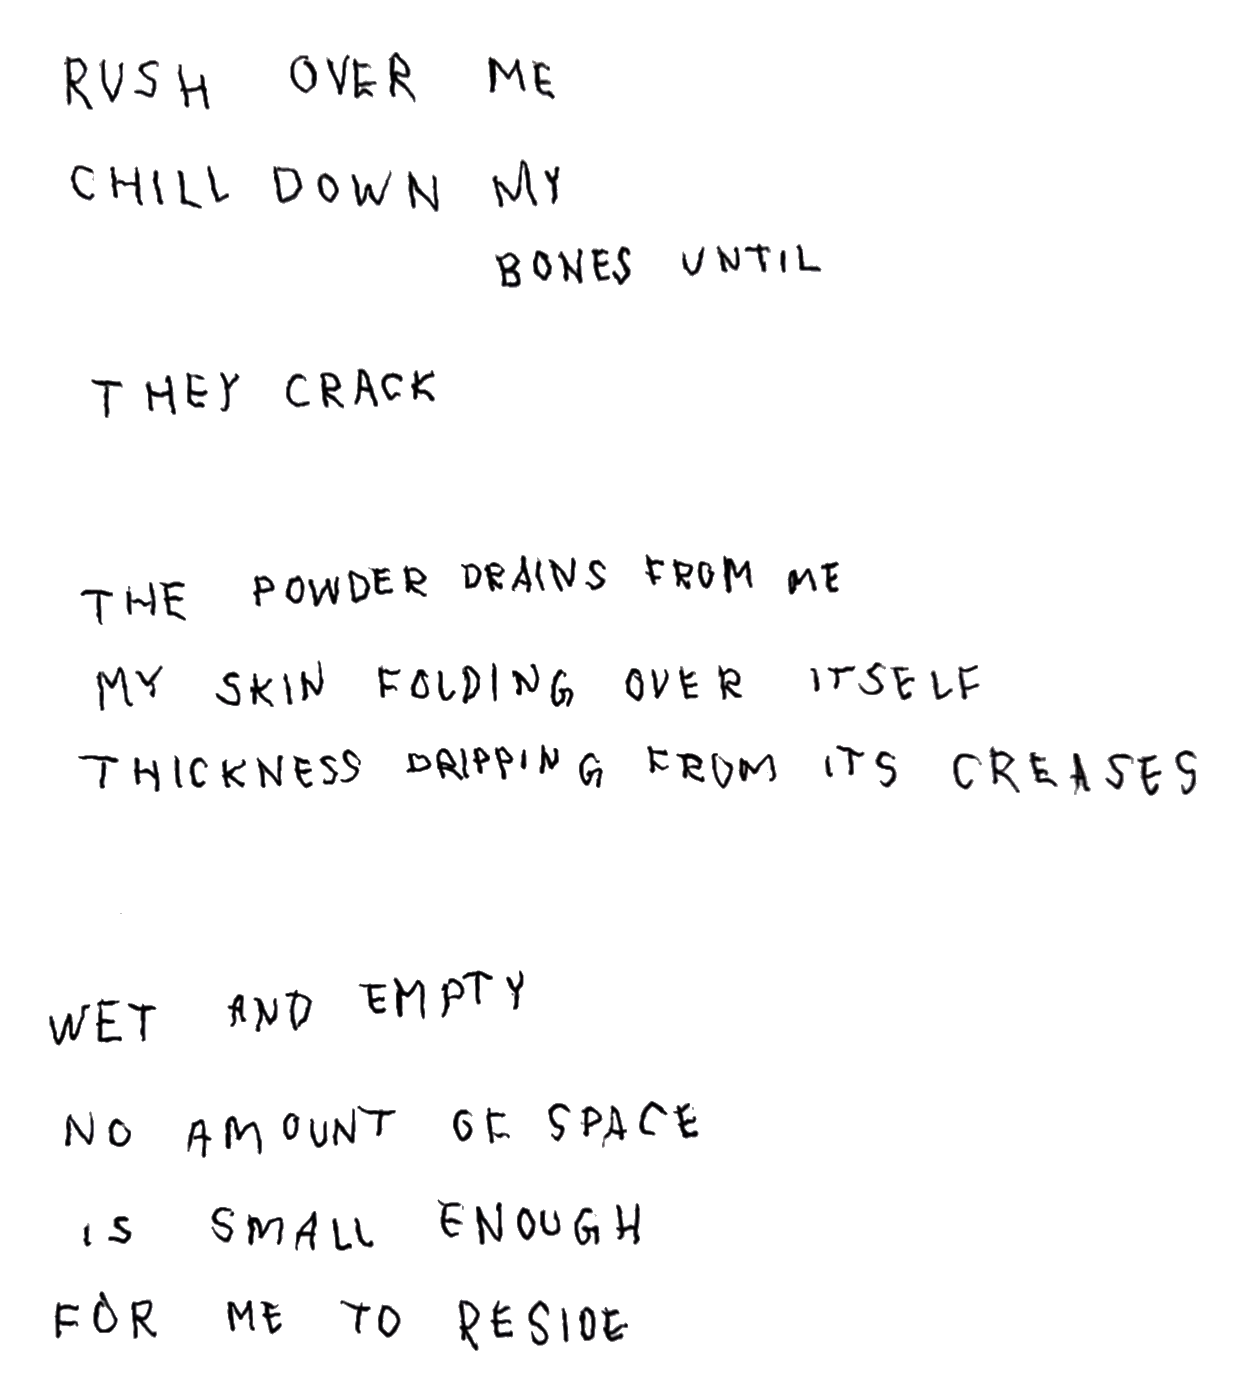 RUSH OVER ME
CHILL DOWN MY
BONES UNTIL
THEY CRACK
THE POWDER DRAINS FROM ME
MY SKIN FOLDING OVER ITSELF
THICKNESS DRIPPING FROM ITS CREASES
WET AND EMPTY
NO AMOUNT OF SPACE
IS SMALL ENOUGH
FOR ME TO RESIDE